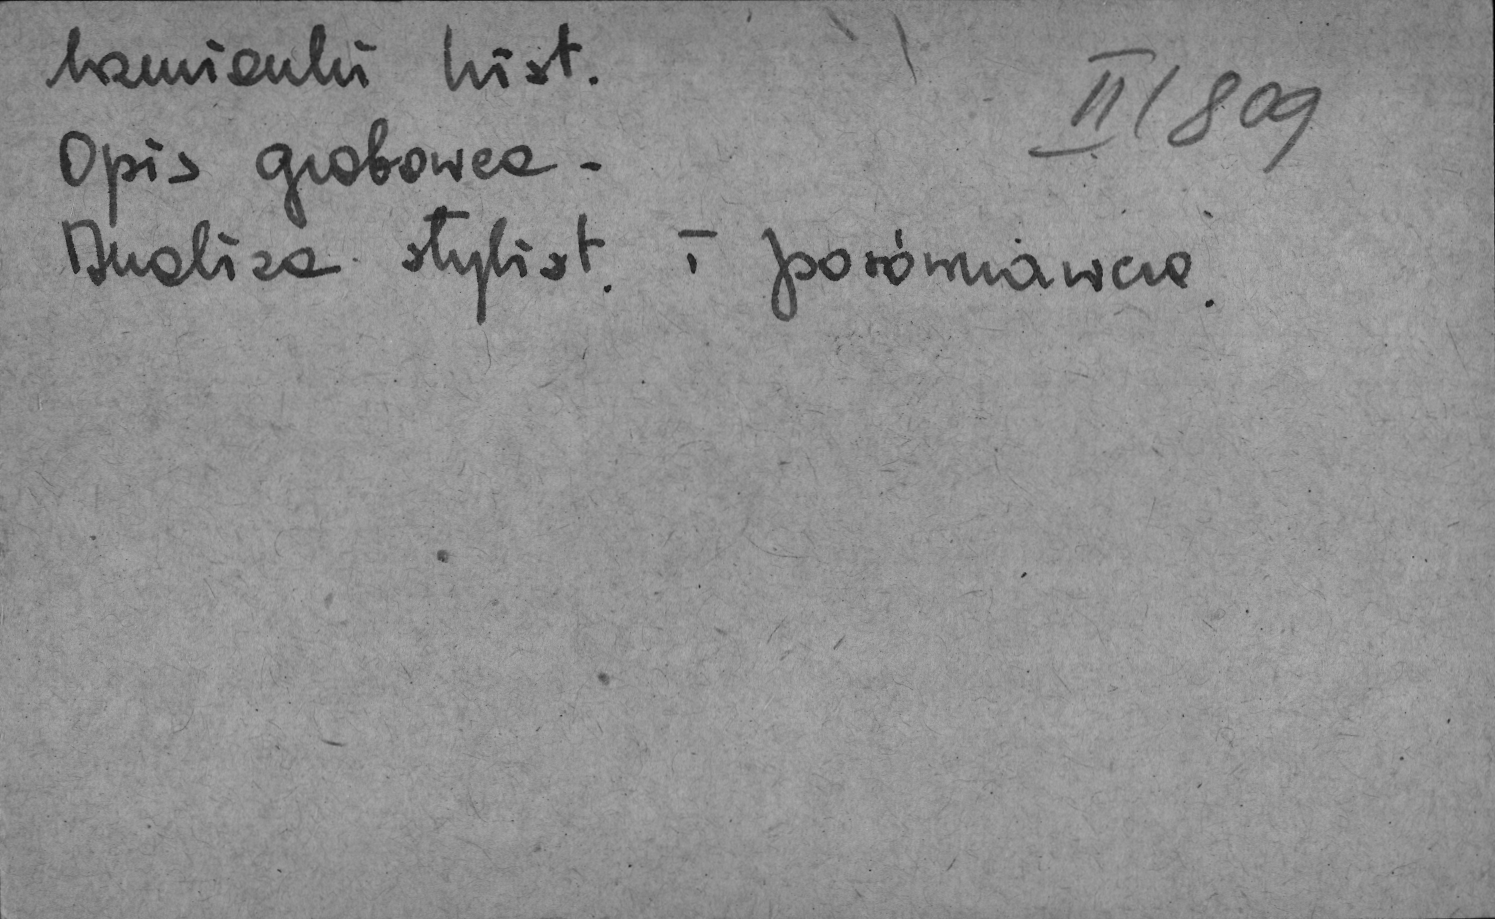 wzmianki hist.
II/809
Opis grobowca -
Analiza stylist. i porównawcza.